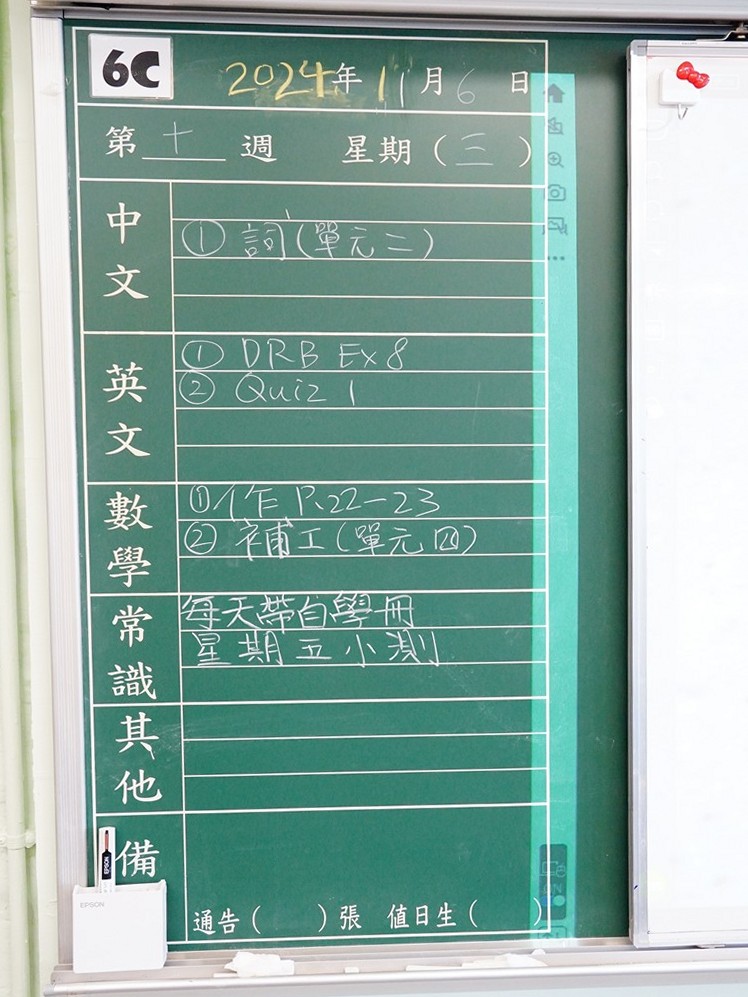 6C
2024年11月6日
第十週 星期(三)
中文
① 詞(單元二)
英文
① DRB Ex 8
② Quiz 1
數學
① 作 P.22-23
② 補工(單元四)
常識
每天帶自學冊
星期五小測
其他
備
通告( )張 值日生( )
EPSON
EPSON